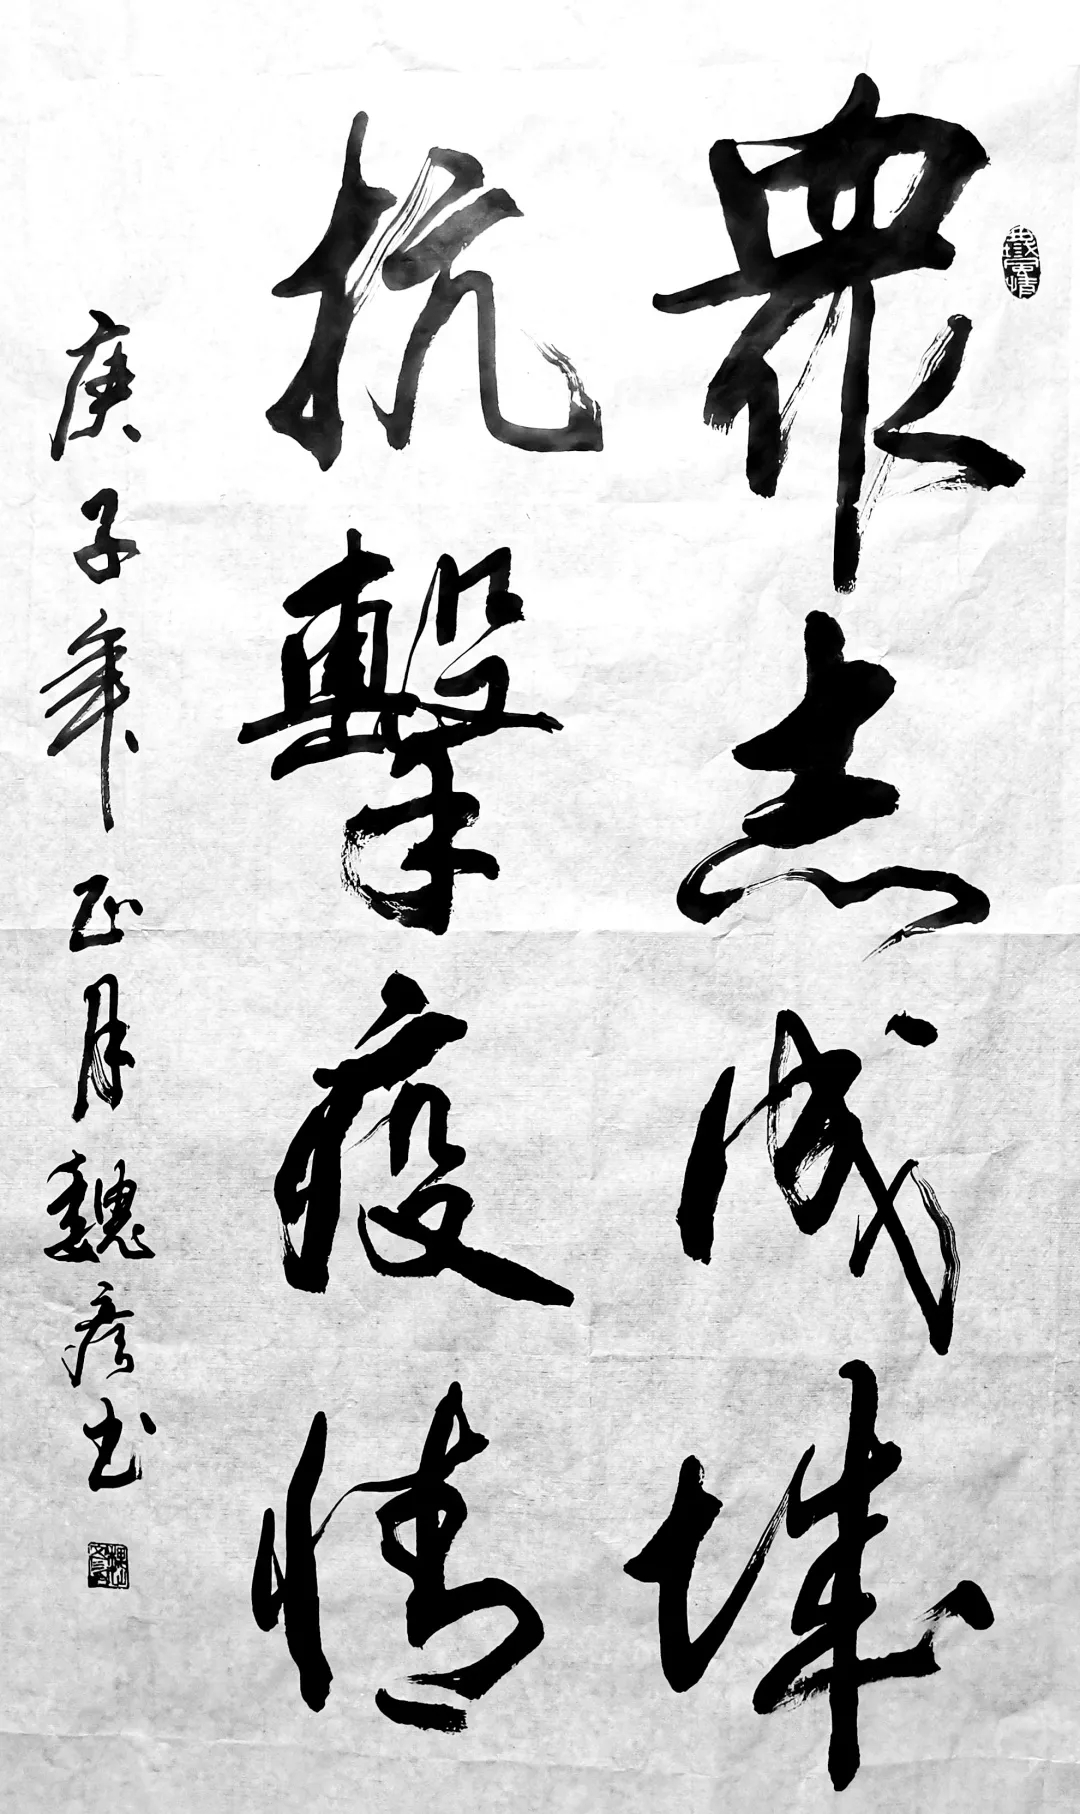 眾志成城
抗擊疫情
庚子年正月魏彦书